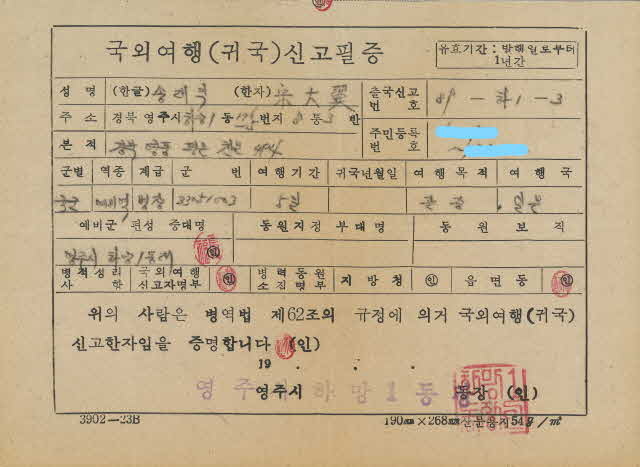 국외여행(귀국)신고필증
유효기간: 발행일로부터
1년간
성명 (한글) 송대익 (한자) 宋大翼
출국신고 번호 89 - 하1 - 3
주소 경북 영주시 하망1동 번지 8통 3반
주민등록 번호
본적 경북
군별 역종 계급 군번 여행기간 귀국년월일 여행목적 여행국
예비역 병장 5일 관광 일본
예비군 편성 중대명 동원지정 부대명 동원보직
영주시 하망1동대
병적정리 사항 국외여행 신고자명부 인 병력동원 소집명부 지방청 인 읍면동 인
위의 사람은 병역법 제62조의 규정에 의거 국외여행(귀국)
신고한자임을 증명합니다 (인)
19 . . .
영주시 하망1동
영주시 동장 (인)
3902-23B
190㎜×268㎜ 신문용지 54g/㎡